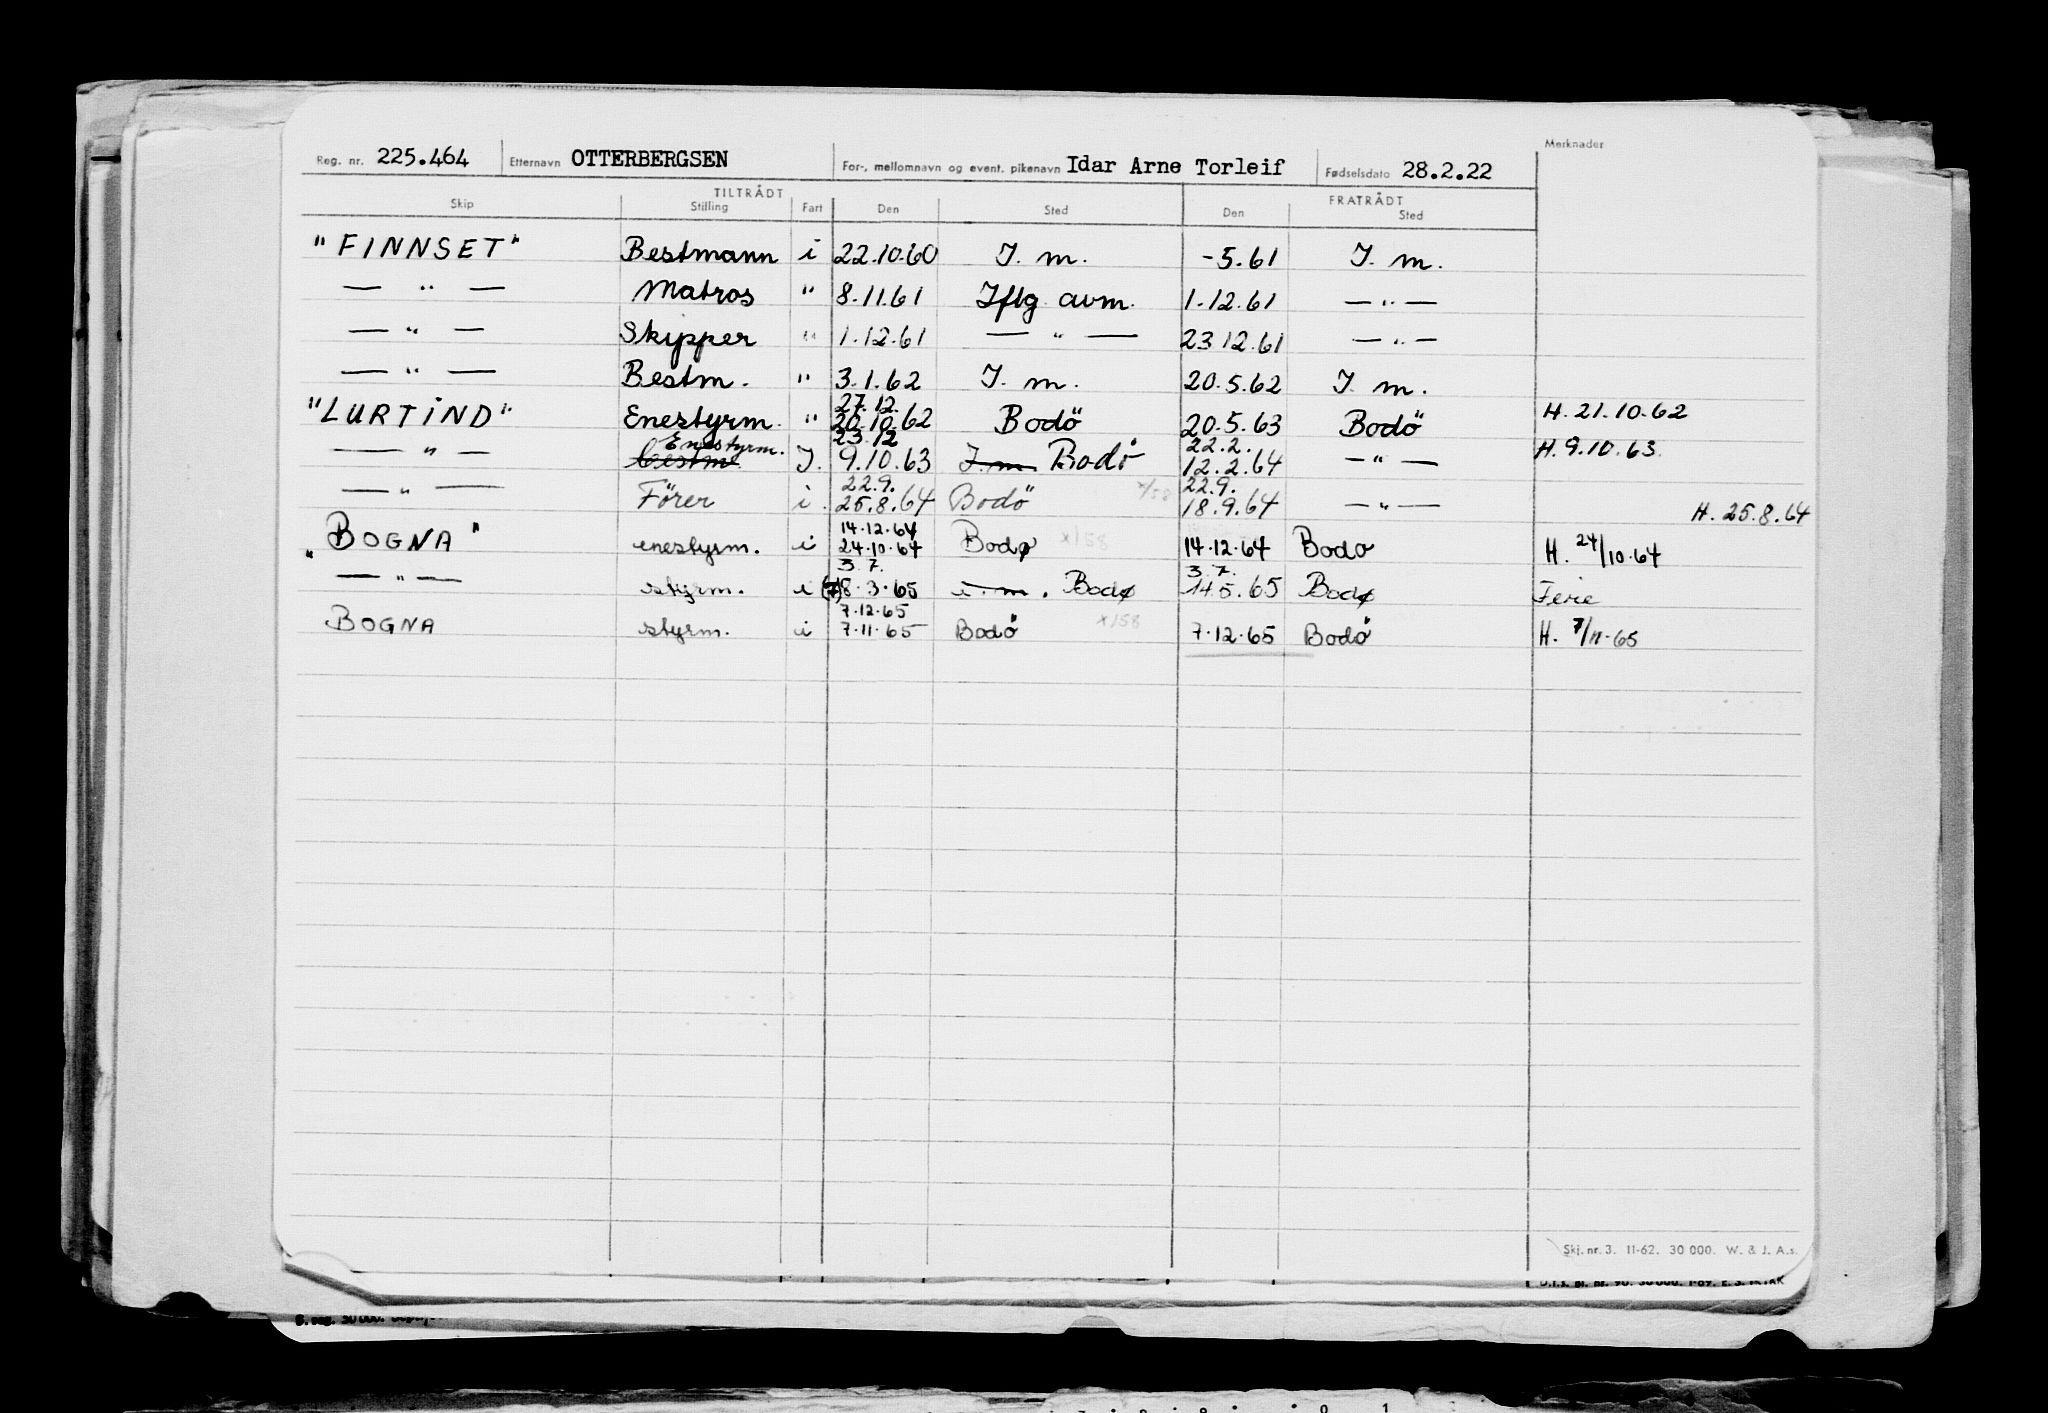 Reg. nr. 225.464 Etternavn OTTERBERGSEN For-, mellomnavn og event. pikenavn Idar Arne Torleif Fødselsdato 28.2.22 Merknader
TILTRÅDT FRATRÅDT
Skip Stilling Fart Den Sted Den Sted
"FINNSET" Bestmann i 22.10.60 J. m. -5.61 J. m.
— " — Matros " 8.11.61 Iflg avm. 1.12.61 — " —
— " — Skipper " 1.12.61 — " — 23 12.61 — " —
— " — Bestm. " 3.1.62 J. m. 20.5.62 J. m.
27.12.
"LURTIND" Enestyrm. " 20.10.62 Bodö 20.5.63 Bodö H. 21.10.62
Enestyrm. 23.12 22.2.
— " — Bestm. J. 9.10.63 J. m Bodö 12.2.64 — " — H. 9.10.63.
22.9. 22.9.
— " — Förer i. 25.8.64 Bodö x/58 18.9.64 — " — H. 25.8.64
14.12.64
"BOGNA" enestyrm. i 24.10.64 Bodø x/58 14.12.64 Bodo H. 24/10.64
3.7. 3.7.
— " — styrm. i 8.3.65 i. m. Bodø 14.5.65 Bodø Ferie
7.12.65
BOGNA styrm. i 7.11.65 Bodö x/58 7.12.65 Bodö H. 7/11-65
Skj. nr. 3. 11-62. 30 000. W. & J. A.s.